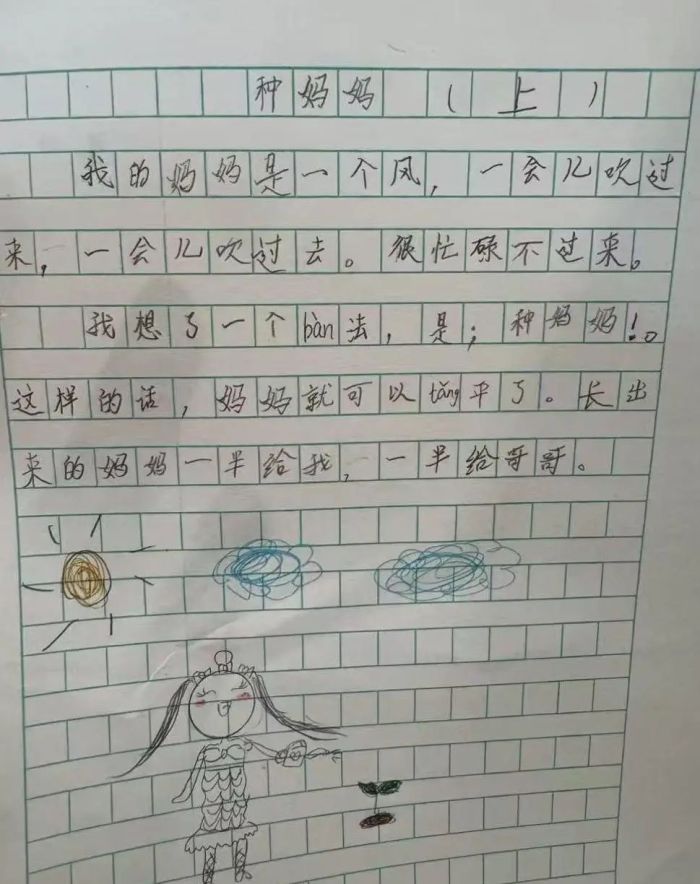 种妈妈（上）
我的妈妈是一个风，一会儿吹过
来，一会儿吹过去。很忙碌不过来。
我想了一个bàn法，是；种妈妈！。
这样的话，妈妈就可以tǎng平了。长出
来的妈妈一半给我，一半给哥哥。